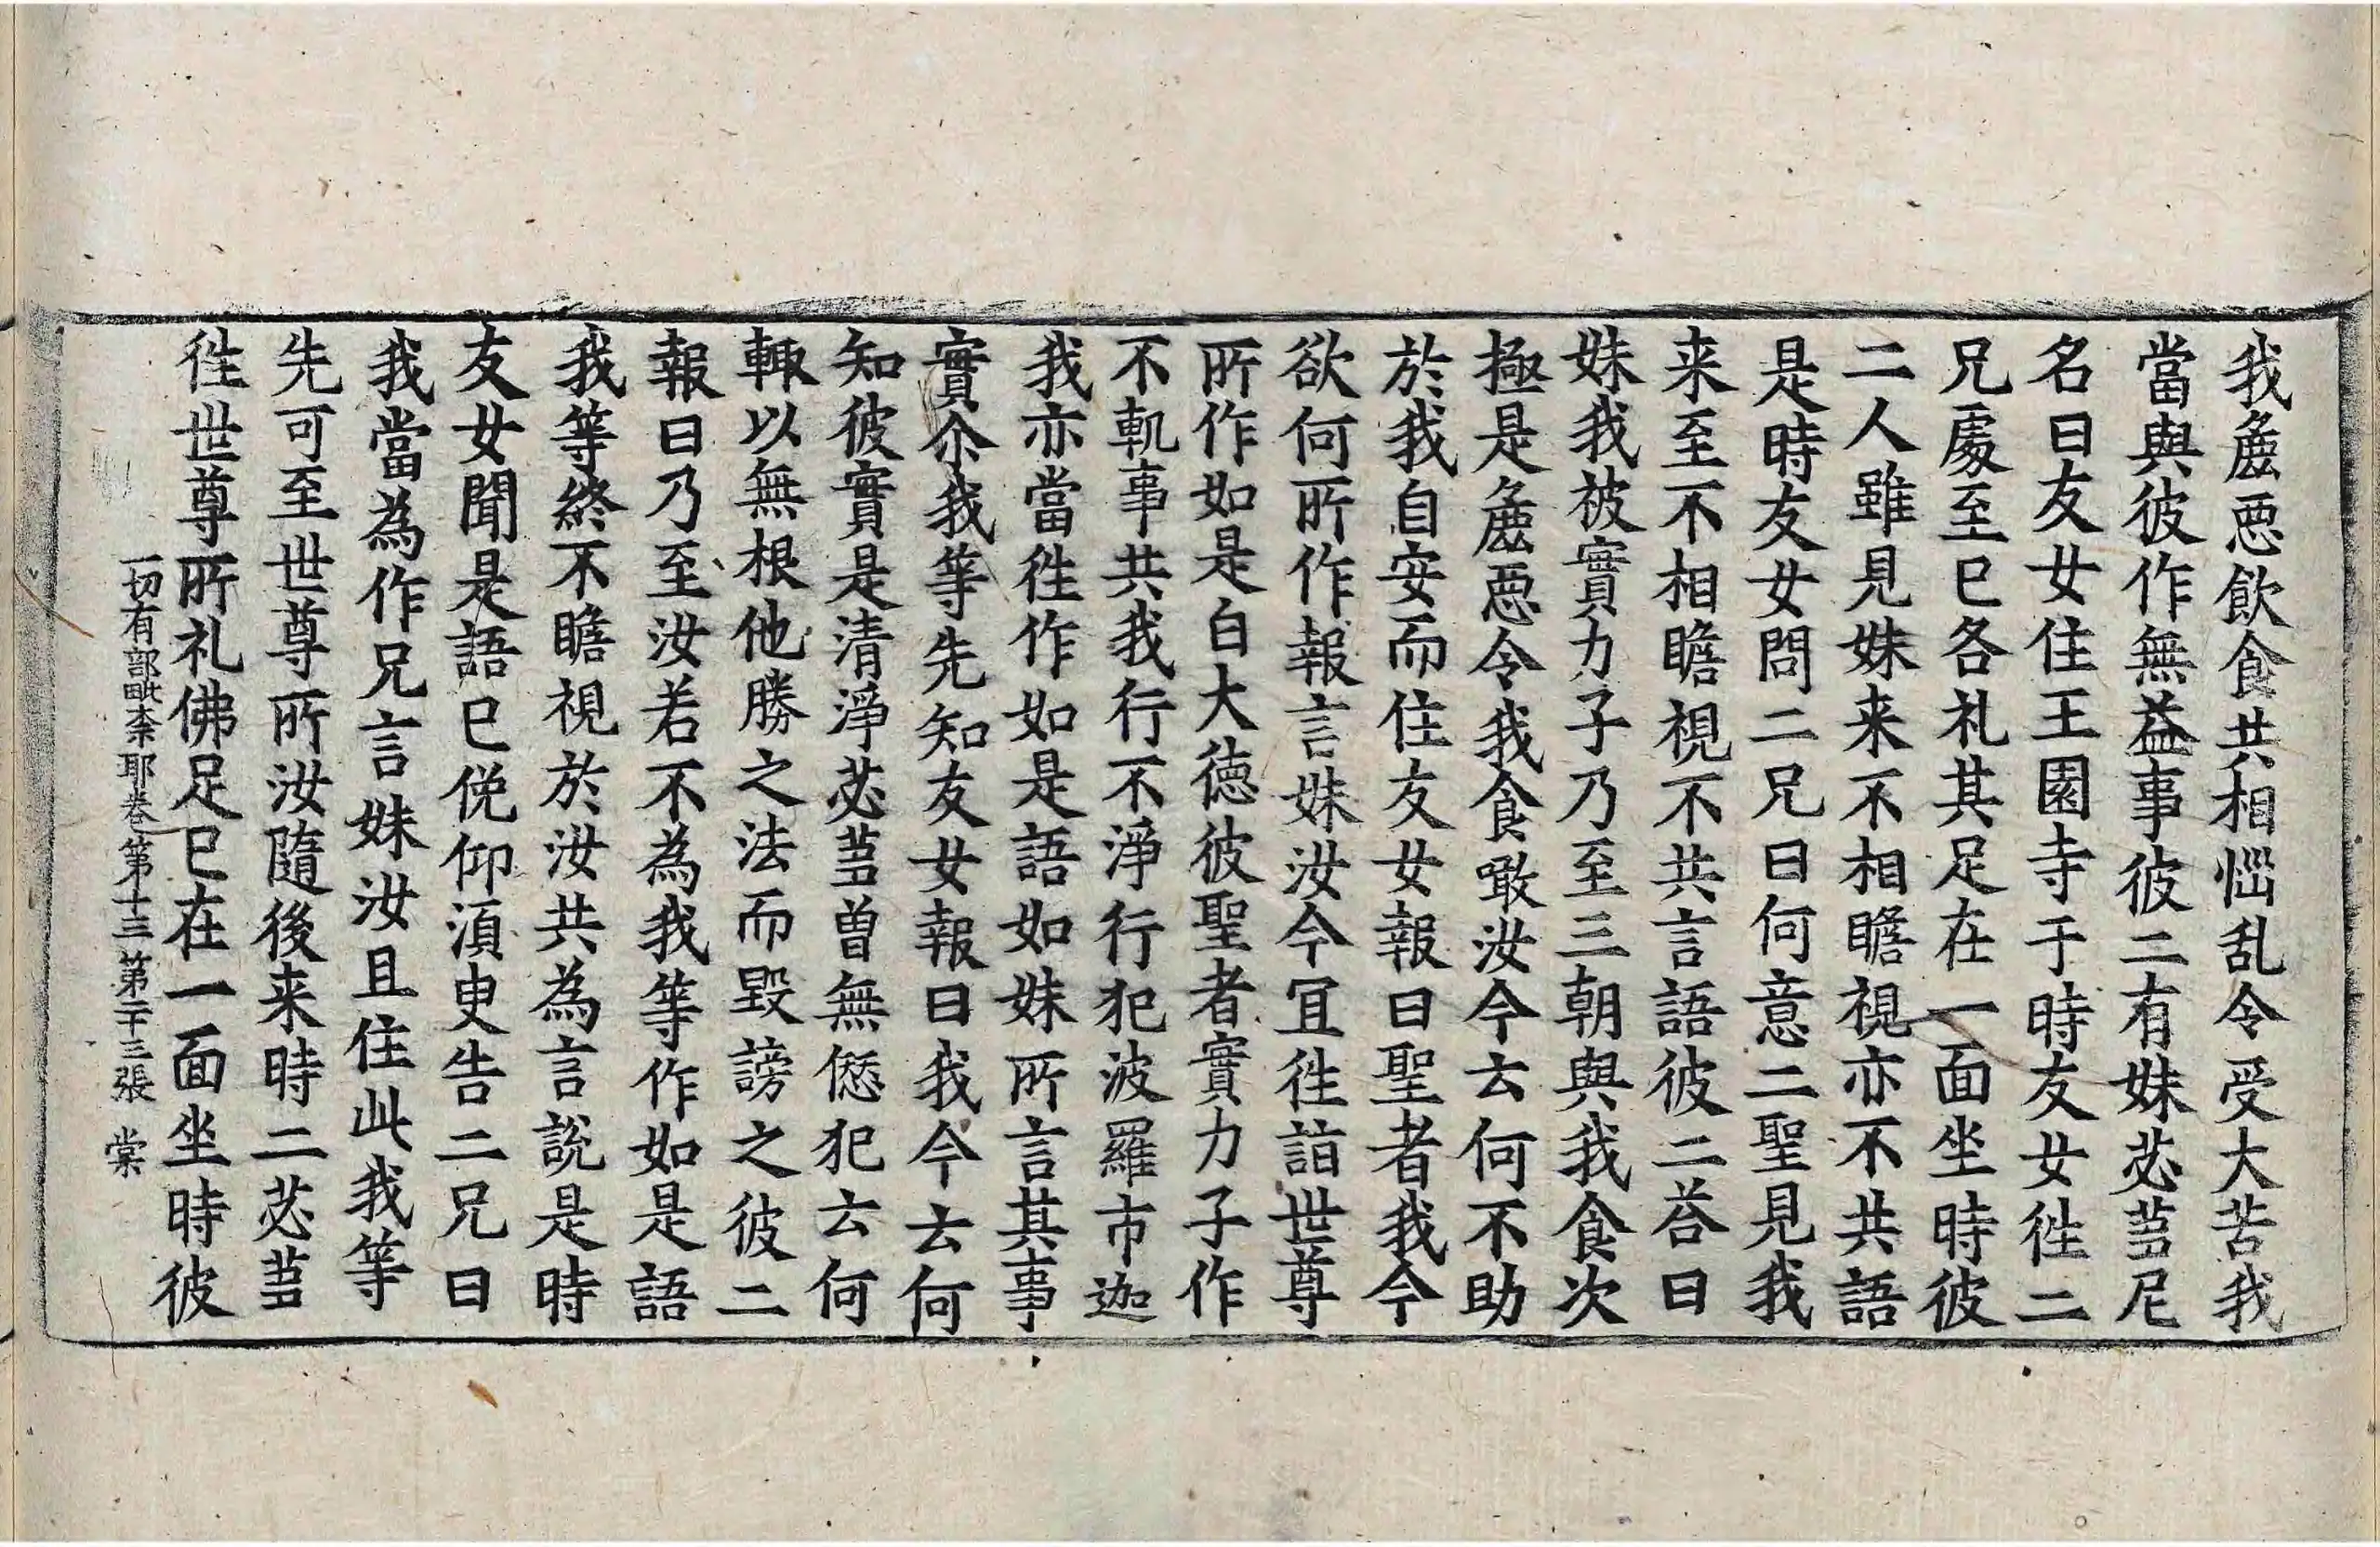 我麁恶飲食共相惱乱令受大苦我
當與彼作無益事彼二有妹苾蒭尼
名曰友女住王園寺于時友女徃二
兄處至已各礼其足在一面坐時彼
二人雖見妹来不相瞻視亦不共語
是時友女問二兄曰何意二聖見我
来至不相瞻視不共言語彼二荅曰
妹我被實力子乃至三朝與我食次
極是麁恶令我食噉汝今云何不助
於我自安而住友女報曰聖者我今
欲何所作報言妹汝今冝徃詣世尊
所作如是白大徳彼聖者實力子作
不軌事共我行不淨行犯波羅市迦
我亦當徃作如是語如妹所言其事
實尒我等先知友女報曰我今云何
知彼實是清淨苾蒭曾無𠎝犯云何
輙以無根他勝之法而毀謗之彼二
報曰乃至汝若不為我等作如是語
我等終不瞻視於汝共為言說是時
友女聞是語已俛仰湏臾告二兄曰
我當為作兄言妹汝且住此我等
先可至世尊所汝隨後来時二苾蒭
徃世尊所礼佛足已在一面坐時彼
一切有部毗柰耶卷第十三 第二十三張 棠